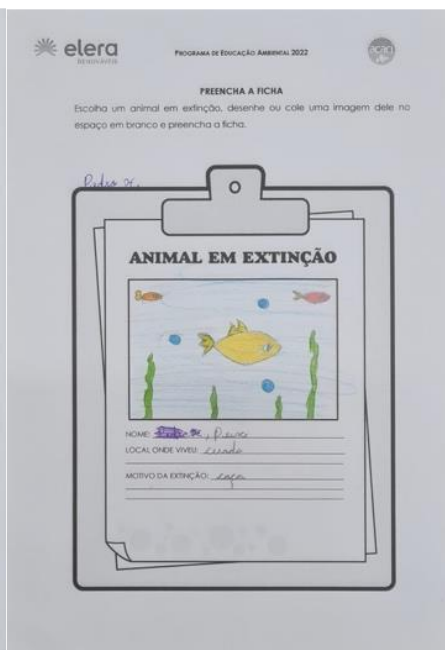 elera
RENOVÁVEIS
PROGRAMA DE EDUCAÇÃO AMBIENTAL 2022
PREENCHA A FICHA
Escolha um animal em extinção, desenhe ou cole uma imagem dele no
espaço em branco e preencha a ficha.
Pedro
ANIMAL EM EXTINÇÃO
NOME: , Peixe
LOCAL ONDE VIVEU:
MOTIVO DA EXTINÇÃO: caça